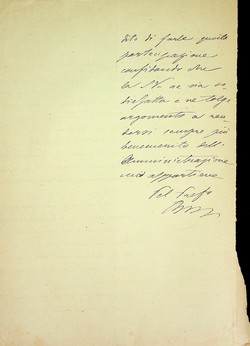 dito di farle questa
partecipazione
confidando che
la S.V. ne sia so
disfatta e ne tolga
argomento a ren
dersi sempre più
benemerita dell'
Amministrazione
cui appartiene
Pel Prefo